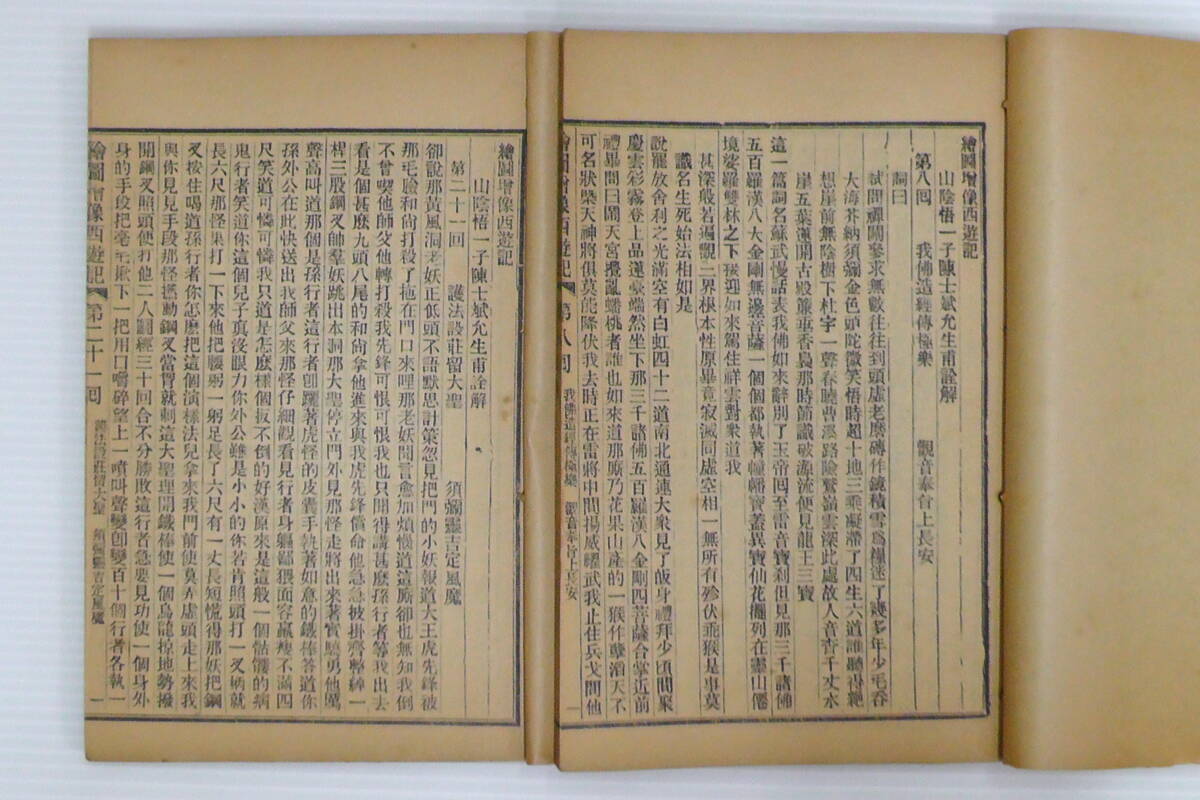 繪圖增像西遊記
山陰悟一子陳士斌允生甫詮解
第八回 我佛造經傳極樂 觀音奉旨上長安
詞曰
試問禪關參求無數往往到頭虛老磨磚作鏡積雪爲糧迷了幾多年少毛吞
大海芥納須彌金色頭陀微笑悟時超十地三乘凝滯了四生六道誰聽得絕
想崖前無陰樹下杜宇一聲春曉曹溪路險鷲嶺雲深此處故人音杳千丈冰
崖五葉蓮開古殿簾垂香裊那時節識破源流便見龍王三寶
這一篇詞名蘇武慢話表我佛如來辭別了玉帝回至雷音寶刹但見那三千諸佛
五百羅漢八大金剛無邊菩薩一個個都執著幢幡寶蓋異寶仙花擺列在靈山僊
境娑羅雙林之下接迎如來駕住祥雲對衆道我
甚深般若遍觀三界根本性原畢竟寂滅同虛空相一無所有殄伏乖猴是事莫
識名生死始法相如是
說罷放舍利之光滿空有白虹四十二道南北通連大衆見了皈身禮拜少頃間聚
慶雲彩霧登上品蓮臺端然坐下那三千諸佛五百羅漢八金剛四菩薩合掌近前
禮畢問曰鬧天宮攪亂蟠桃者誰也如來道那廝乃花果山產的一猴作孽滔天不
可名狀槩天神將俱莫能降伏我去時正在雷將中間揚威耀武我止住兵戈問他
繪圖增像西遊記 第八回 我佛造經傳極樂 觀音奉旨上長安 一
繪圖增像西遊記
山陰悟一子陳士斌允生甫詮解
第二十一回 護法設莊留大聖 須彌靈吉定風魔
卻說那黃風洞老妖正低頭不語默思計策忽見把門的小妖報道大王虎先鋒被
那毛臉和尙打殺了拖在門口來哩那老妖聞言愈加煩惱道這廝卻也無知我倒
不曾喫他師父他轉打殺我先鋒可恨可恨我也只聞得講甚麽孫行者等我出去
看是個甚麽九頭八尾的和尙拿他進來與我虎先鋒償命他急急被掛齊整綽一
桿三股鋼叉帥羣妖跳出本洞那大聖停立門外見那怪走將出來著實驍勇他厲
聲高叫道那個是孫行者這行者腳躧著虎怪的皮囊手執著如意的鐵棒答道你
孫外公在此快送出我師父來那怪仔細觀看見行者身軀鄙猥面容羸瘦不滿四
尺笑道可憐可憐我只道是怎麽樣個扳不倒的好漢原來是這般一個骷髏的病
鬼行者笑道你這個兒子眞沒眼力你外公雖是小小的你若肯照頭打一叉柄就
長六尺那怪果打一下來他把腰躬一躬足長了六尺有一丈長短慌得那妖把鋼
叉按住喝道孫行者你怎麽把這個演樣法兒拿來我門前使莫弄虛頭走上來我
與你見見手段那怪撚動鋼叉當胷就刺這大聖理開鐵棒使一個烏龍掠地勢撥
開鋼叉照頭便打他二人鬬經三十回合不分勝敗這行者急要見功使一個身外
身的手段把毫毛揪下一把用口嚼碎望上一噴叫聲變卽變百十個行者各執一
繪圖增像西遊記 第二十一回 護法設莊留大聖 須彌靈吉定風魔 一